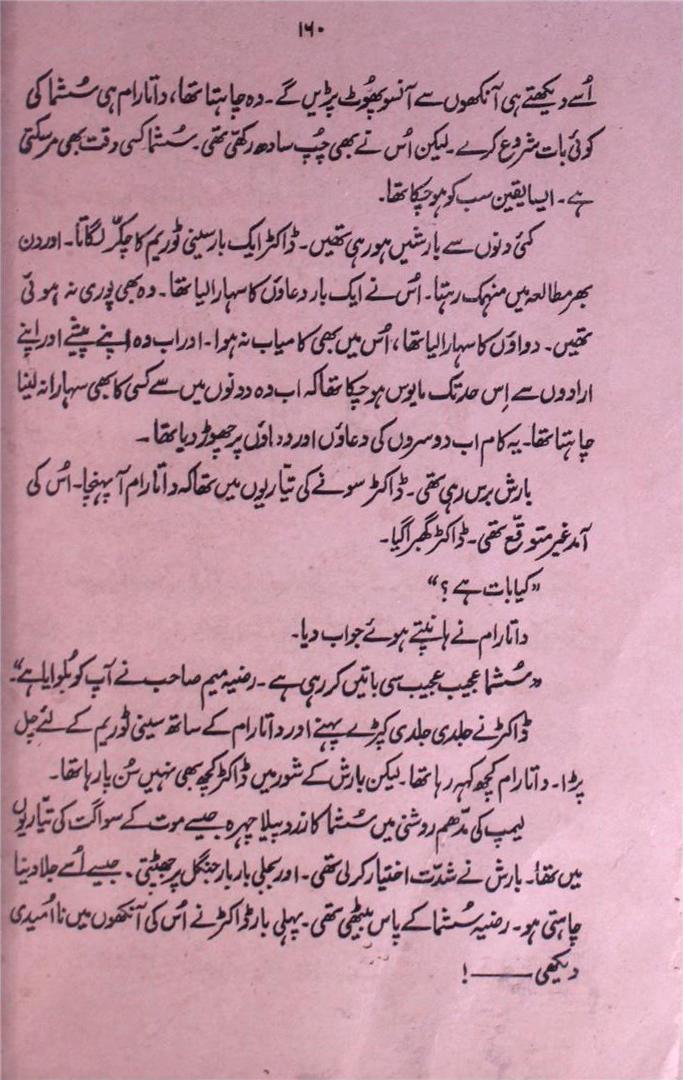 ۱۶۰
اُسے دیکھتے ہی آنکھوں سے آنسو پھوٹ پڑیں گے۔ وہ چاہتا تھا، داتا رام ہی سُشما کی
کوئی بات شروع کرے۔ لیکن اُس نے بھی چُپ سادھ رکھی تھی۔ سُشما کسی وقت بھی مر سکتی
ہے۔ ایسا یقین سب کو ہو چکا تھا۔
کئی دنوں سے بارشیں ہو رہی تھیں۔ ڈاکٹر ایک بار سینی ٹوریم کا چکّر لگاتا۔ اور دن
بھر مطالعہ میں منہمک رہتا۔ اُس نے ایک بار دعاؤں کا سہارا لیا تھا۔ وہ بھی پوری نہ ہوئی
تھیں۔ دواؤں کا سہارا لیا تھا، اُس میں بھی کامیاب نہ ہوا۔ اور اب وہ اپنے پیشے اور اپنے
ارادوں سے اِس حد تک مایوس ہو چکا تھا کہ اب وہ دونوں میں سے کسی کا بھی سہارا نہ لینا
چاہتا تھا۔ یہ کام اب دوسروں کی دعاؤں اور دواؤں پر چھوڑ دیا تھا۔
بارش برس رہی تھی۔ ڈاکٹر سونے کی تیّاریوں میں تھا کہ داتا رام آ پہنچا۔ اُس کی
آمد غیر متوقّع تھی۔ ڈاکٹر گھبرا گیا۔
”کیا بات ہے؟“
داتا رام نے ہانپتے ہوئے جواب دیا۔
”سُشما عجیب عجیب سی باتیں کر رہی ہے۔ رضیہ میم صاحب نے آپ کو بُلوایا ہے“۔
ڈاکٹر نے جلدی جلدی کپڑے پہنے اور داتا رام کے ساتھ سینی ٹوریم کے لئے چل
پڑا۔ داتا رام کچھ کہہ رہا تھا۔ لیکن بارش کے شور میں ڈاکٹر کچھ بھی نہیں سُن پا رہا تھا۔
لیمپ کی مدّھم روشنی میں سُشما کا زرد پیلا چہرہ جیسے موت کے سواگت کی تیّاریوں
میں تھا۔ بارش نے شدّت اختیار کر لی تھی۔ اور بجلی بار بار جنگل پر جھپٹتی۔ جیسے اُسے جلا دینا
چاہتی ہو۔ رضیہ سُشما کے پاس بیٹھی تھی۔ پہلی بار ڈاکٹر نے اُس کی آنکھوں میں نا اُمیدی
دیکھی ——!